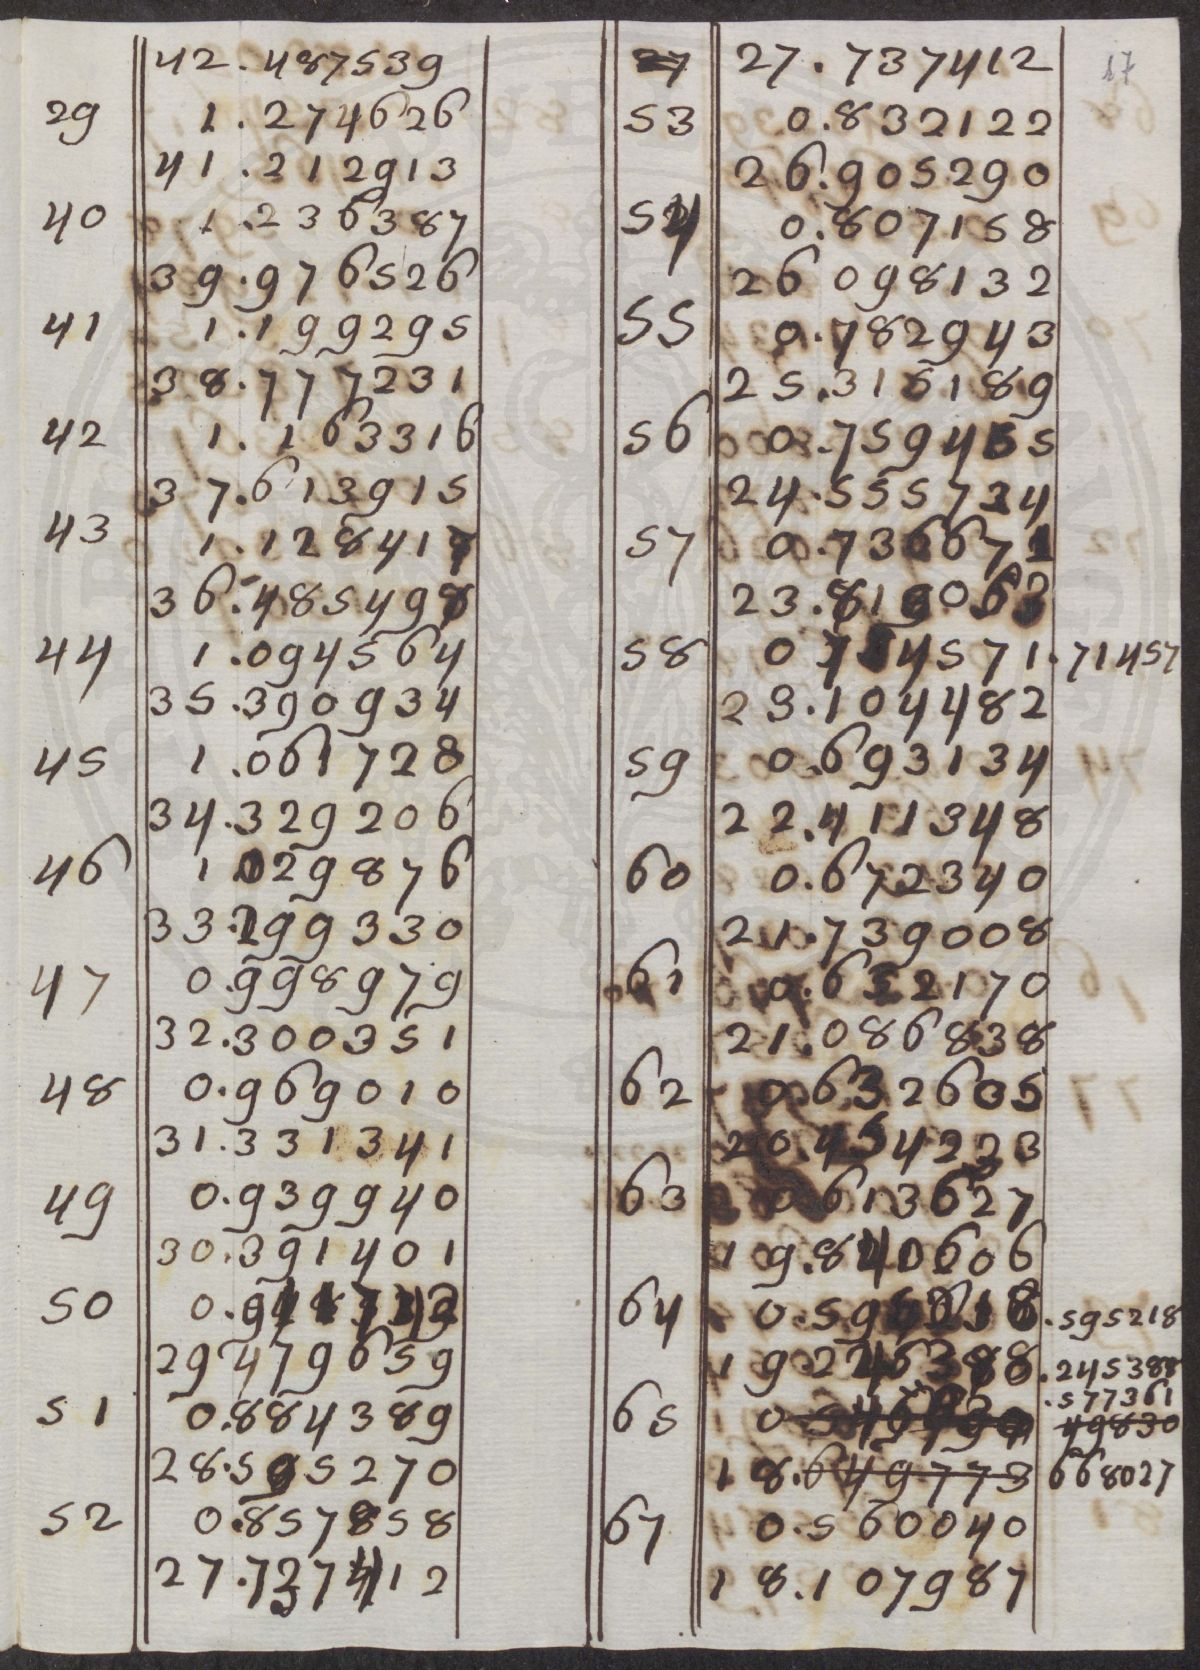 42.487539
29 1.274626
41.212913
40 1.236387
39.976526
41 1.199295
38.777231
42 1.163316
37.613915
43 1.128417
36.485498
44 1.094564
35.390934
45 1.061728
34.329206
46 1 029876
33.299330
47 0.998979
32.300351
48 0.969010
31.331341
49 0.939940
30.391401
50
29 479659
51 0.884389
28.595270
52 0.857858
27.737412
27 27.737412 17
53 0.832122
26.905290
54 0.807158
26 098132
55 0.782943
25.315189
56 0.759455
24.555734
57 0.736671
23.819063
58 0 714571 .71457
23.104482
59 0.693134
22.411348
60 0.672340
21.739008
61 0.652170
21.086838
62 0.632605
20.454233
63 0.613627
19.840606
64 .595218
.245388
65 .577361
49830
18.649773 668027
67 0.560040
18.107987